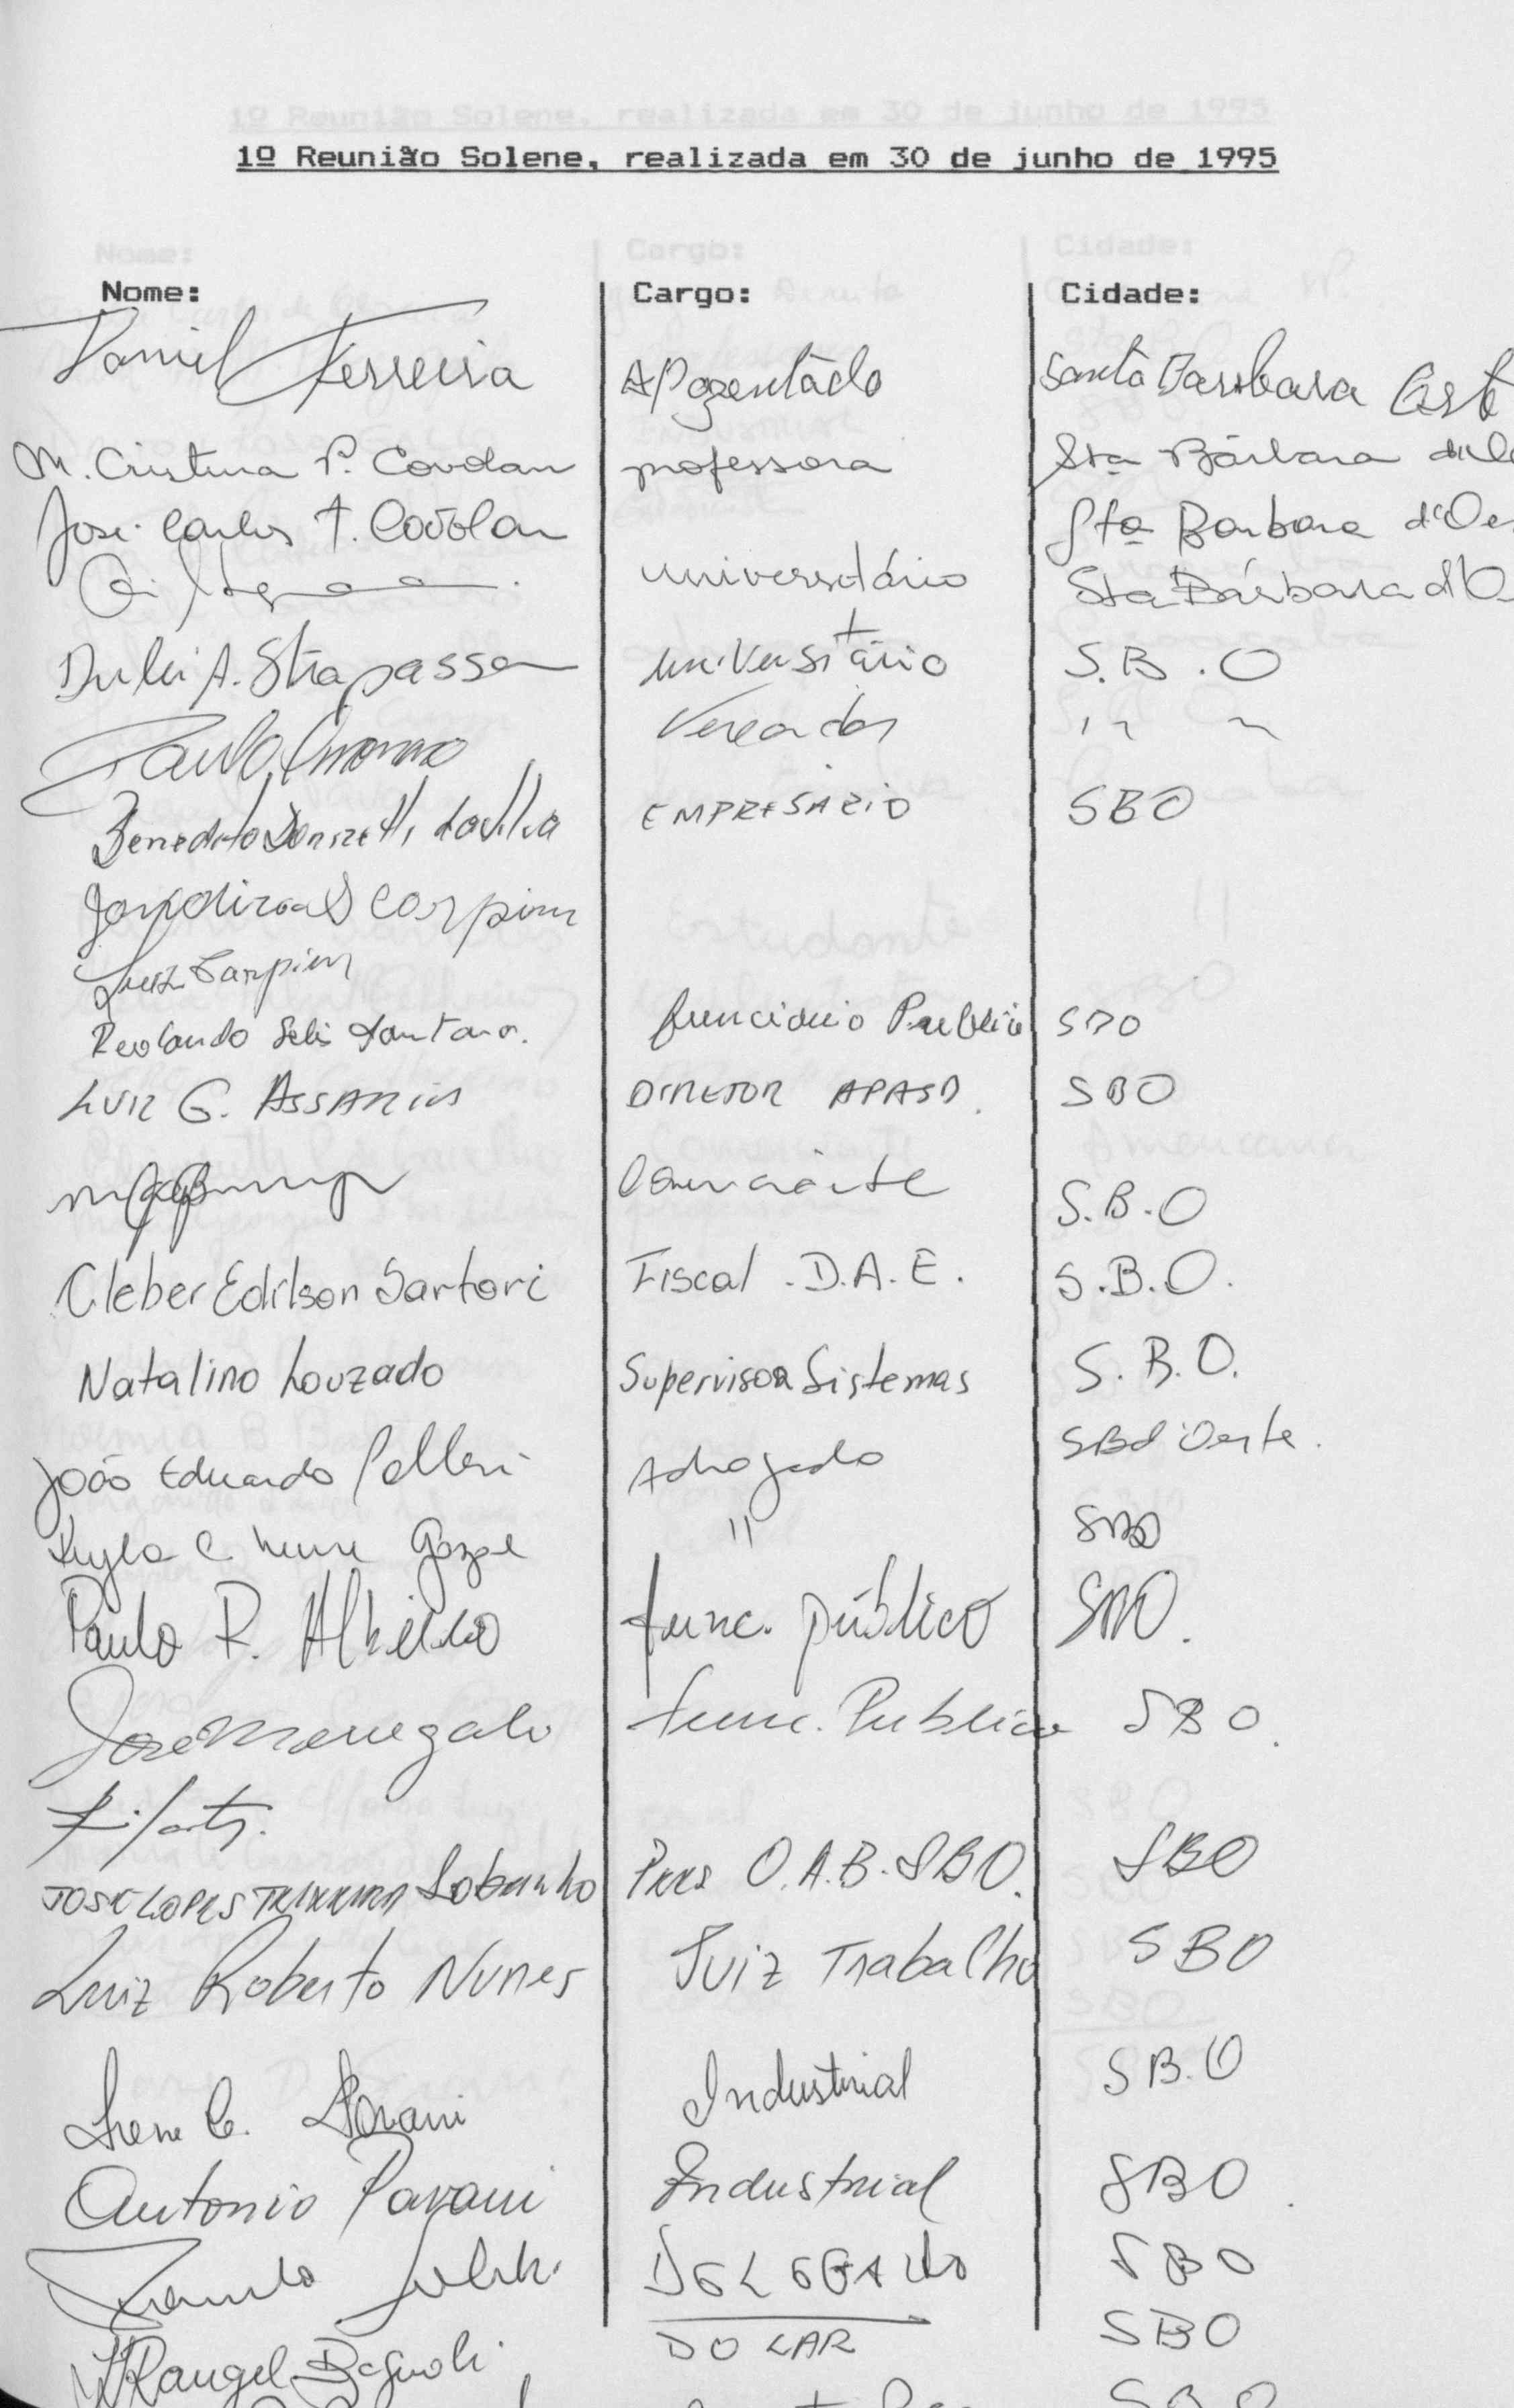 1º Reunião Solene, realizada em 30 de junho de 1995
Nome: Cargo: Cidade:
Daniel Ferreira APozentádo Santa Barbara
M. Cristina P. Covolan professora Sta Bárbara
José Carlos T. Covolan Sta Barbara d'Oe
universitário Sta Bárbara d'O
Dulci A. Strapasson universitário S.B.O
Paulo Vereador " "
Benedito Donizetti EMPRESÁRIO SBO
Scarpim
Luiz Carpim
funcionário Publico SBO
LUIZ G. DIRETOR SBO
Comerciante S.B.O
Cleber Edilson Sartori Fiscal . D.A.E. S.B.O.
Natalino Louzado Supervisor Sistemas S.B.O.
João Eduardo Advogado SBd'Oeste.
" SBO
Paulo R. func. público SBO.
José Menegalo func. Publico SBO.
JOSÉ LOPES Sobrinho Pres O.A.B. SBO. SBO
Luiz Roberto Nunes Juiz Trabalho SBO
Irene C. Pavani Industrial S B.O
Antonio Pavani Industrial SBO.
DELEGADO SBO
Rangel Bagnoli DO LAR SBO
SBO